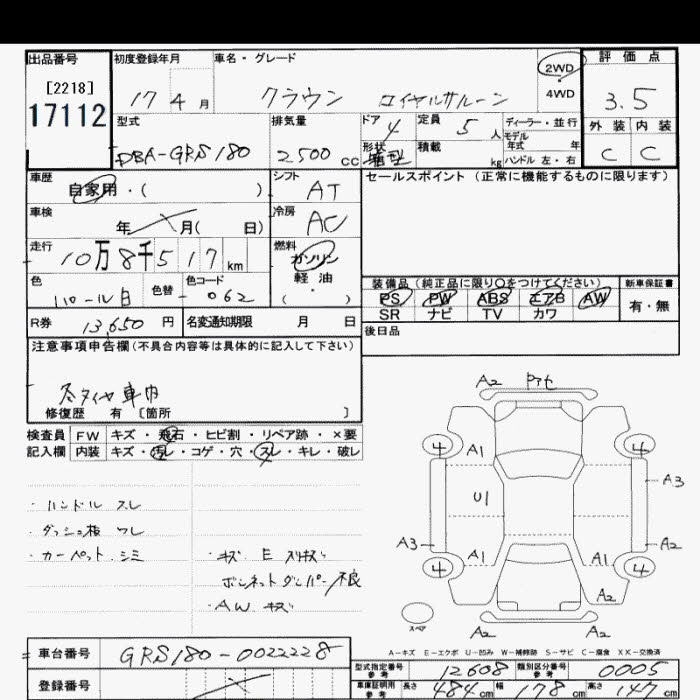 出品番号 初度登録年月 車名・グレード 評価点
[2218] 17 4月 クラウン ロイヤルサルーン 2WD・4WD 3.5
17112 外装 内装
型式 排気量 ドア 4 定員 5人 ディーラー・並行 C C
DBA-GRS180 2500cc 形状 箱型 積載 kg モデル年式 年 ハンドル 左・右
車歴 自家用・( ) シフト AT セールスポイント (正常に機能するものに限ります)
車検 年 月( 日) 冷房 AC
走行 10万8千517km 燃料 ガソリン
軽油
( )
色 パール白 色替 - 色コード 062 装備品(純正品に限り○をつけてください) 新車保証書
PS PW ABS エアB AW 有・無
SR ナビ TV カワ
R券 13,650円 名変通知期限 月 日 後日品
注意事項申告欄(不具合内容等は具体的に記入して下さい)
冬タイヤ車内
修復歴 有 〔箇所 〕
検査員 FW キズ・飛石・ヒビ割・リペア跡・×要
記入欄 内装 キズ・汚レ・コゲ・穴・スレ・キレ・破レ
・ハンドル スレ
・ダッシュ板 ワレ
・カーペット シミ
・キズ E スリキズ
ボンネットダンパー不良
・AW キズ
A2
4 A1 4
U1 A3
A3 A2
4 A1 A1 4
A2
スペア
A2 A2
A-キズ E-エクボ U-凹み W-補修跡 S-サビ C-腐食 XX-交換済
車台番号 GRS180-0022228
登録番号
型式指定番号 参考 12608 類別区分番号 参考 0005
車庫証明用 参考 長さ 484cm 幅 178cm 高さ 147cm